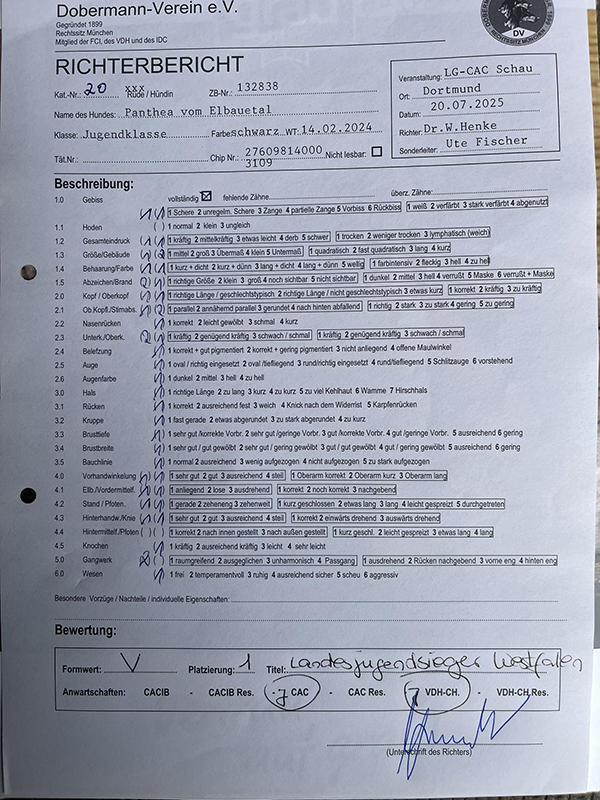 Dobermann-Verein e.V.
Gegründet 1899
Rechtssitz München
Mitglied der FCI, des VDH und des IDC
DV
RECHTSSITZ MÜNCHEN
RICHTERBERICHT
Kat.-Nr.: 20 xxx Rüde / Hündin ZB-Nr.: 132838
Name des Hundes: Panthea vom Elbauetal
Klasse: Jugendklasse Farbe: schwarz WT: 14.02.2024
Tät.Nr.: Chip Nr.: 27609814000 3109 Nicht lesbar:
Veranstaltung: LG-CAC Schau
Ort: Dortmund
Datum: 20.07.2025
Richter: Dr.W.Henke
Sonderleiter: Ute Fischer
Beschreibung:
1.0 Gebiss vollständig fehlende Zähne: überz. Zähne:
1 Schere 2 unregelm. Schere 3 Zange 4 partielle Zange 5 Vorbiss 6 Rückbiss 1 weiß 2 verfärbt 3 stark verfärbt 4 abgenutzt
1.1 Hoden ( ) 1 normal 2 klein 3 ungleich
1.2 Gesamteindruck 1 kräftig 2 mittelkräftig 3 etwas leicht 4 derb 5 schwer 1 trocken 2 weniger trocken 3 lymphatisch (weich)
1.3 Größe/Gebäude 1 mittel 2 groß 3 Übermaß 4 klein 5 Untermaß 1 quadratisch 2 fast quadratisch 3 lang 4 kurz
1.4 Behaarung/Farbe 1 kurz + dicht 2 kurz + dünn 3 lang + dicht 4 lang + dünn 5 wellig 1 farbintensiv 2 fleckig 3 hell 4 zu hell
1.5 Abzeichen/Brand 1 richtige Größe 2 klein 3 groß 4 noch sichtbar 5 nicht sichtbar 1 dunkel 2 mittel 3 hell 4 verrußt 5 Maske 6 verrußt + Maske
2.0 Kopf / Oberkopf 1 richtige Länge / geschlechtstypisch 2 richtige Länge / nicht geschlechtstypisch 3 etwas kurz 1 korrekt 2 kräftig 3 zu kräftig
2.1 Ob.Kopfl./Stirnabs. 1 parallel 2 annähernd parallel 3 gerundet 4 nach hinten abfallend 1 richtig 2 stark 3 zu stark 4 gering 5 zu gering
2.2 Nasenrücken 1 korrekt 2 leicht gewölbt 3 schmal 4 kurz
2.3 Unterk./Oberk. 1 kräftig 2 genügend kräftig 3 schwach / schmal 1 kräftig 2 genügend kräftig 3 schwach / schmal
2.4 Belefzung 1 korrekt + gut pigmentiert 2 korrekt + gering pigmentiert 3 nicht anliegend 4 offene Maulwinkel
2.5 Auge 1 oval / richtig eingesetzt 2 oval /tiefliegend 3 rund/richtig eingesetzt 4 rund/tiefliegend 5 Schlitzauge 6 vorstehend
2.6 Augenfarbe 1 dunkel 2 mittel 3 hell 4 zu hell
3.0 Hals 1 richtige Länge 2 zu lang 3 kurz 4 zu kurz 5 zu viel Kehlhaut 6 Wamme 7 Hirschhals
3.1 Rücken 1 korrekt 2 ausreichend fest 3 weich 4 Knick nach dem Widerrist 5 Karpfenrücken
3.2 Kruppe 1 fast gerade 2 etwas abgerundet 3 zu stark abgerundet 4 zu kurz
3.3 Brusttiefe 1 sehr gut /korrekte Vorbr. 2 sehr gut /geringe Vorbr. 3 gut /korrekte Vorbr. 4 gut /geringe Vorbr. 5 ausreichend 6 gering
3.4 Brustbreite 1 sehr gut / gut gewölbt 2 sehr gut / gering gewölbt 3 gut / gut gewölbt 4 gut / gering gewölbt 5 ausreichend 6 gering
3.5 Bauchlinie 1 normal 2 ausreichend 3 wenig aufgezogen 4 nicht aufgezogen 5 zu stark aufgezogen
4.0 Vorhandwinkelung 1 sehr gut 2 gut 3 ausreichend 4 steil 1 Oberarm korrekt 2 Oberarm kurz 3 Oberarm lang
4.1 Ellb./Vordermittelf. 1 anliegend 2 lose 3 ausdrehend 1 korrekt 2 noch korrekt 3 nachgebend
4.2 Stand / Pfoten. 1 gerade 2 zeheneng 3 zehenweit 1 kurz geschlossen 2 etwas lang 3 lang 4 leicht gespreizt 5 durchgetreten
4.3 Hinterhandw./Knie 1 sehr gut 2 gut 3 ausreichend 4 steil 1 korrekt 2 einwärts drehend 3 auswärts drehend
4.4 Hintermittelf./Pfoten ( ) ( ) 1 korrekt 2 nach innen gestellt 3 nach außen gestellt 1 kurz geschl. 2 leicht gespreizt 3 etwas lang 4 lang
4.5 Knochen 1 kräftig 2 ausreichend kräftig 3 leicht 4 sehr leicht
5.0 Gangwerk 1 raumgreifend 2 ausgeglichen 3 unharmonisch 4 Passgang 1 ausdrehend 2 Rücken nachgebend 3 vorne eng 4 hinten eng
6.0 Wesen 1 frei 2 temperamentvoll 3 ruhig 4 ausreichend sicher 5 scheu 6 aggressiv
Besondere Vorzüge / Nachteile / individuelle Eigenschaften:
Bewertung:
Formwert: V Platzierung: 1 Titel: Landesjugendsieger Westfalen
Anwartschaften: CACIB - CACIB Res. - J CAC - CAC Res. J VDH-CH. - VDH-CH.Res.
(Unterschrift des Richters)